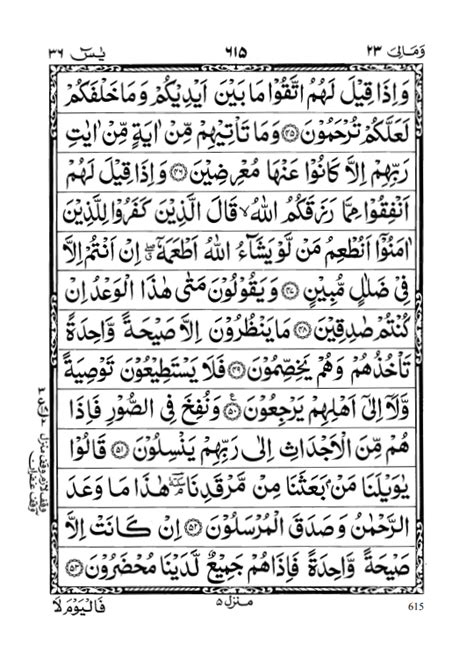 وَمَالِیَ ٢٣ ٦١٥ يٰسٓ ٣٦
وَاِذَا قِيْلَ لَهُمُ اتَّقُوْا مَا بَيْنَ اَيْدِيْكُمْ وَمَا خَلْفَكُمْ
لَعَلَّكُمْ تُرْحَمُوْنَ ﴿٤٥﴾ وَمَا تَاْتِيْهِمْ مِّنْ اٰيَةٍ مِّنْ اٰيٰتِ
رَبِّهِمْ اِلَّا كَانُوْا عَنْهَا مُعْرِضِيْنَ ﴿٤٦﴾ وَاِذَا قِيْلَ لَهُمْ
اَنْفِقُوْا مِمَّا رَزَقَكُمُ اللّٰهُ ۙ قَالَ الَّذِيْنَ كَفَرُوْا لِلَّذِيْنَ
اٰمَنُوْۤا اَنُطْعِمُ مَنْ لَّوْ يَشَآءُ اللّٰهُ اَطْعَمَهٗۤ ۖ اِنْ اَنْتُمْ اِلَّا
فِيْ ضَلٰلٍ مُّبِيْنٍ ﴿٤٧﴾ وَيَقُوْلُوْنَ مَتٰى هٰذَا الْوَعْدُ اِنْ
كُنْتُمْ صٰدِقِيْنَ ﴿٤٨﴾ مَا يَنْظُرُوْنَ اِلَّا صَيْحَةً وَّاحِدَةً
تَاْخُذُهُمْ وَهُمْ يَخِصِّمُوْنَ ﴿٤٩﴾ فَلَا يَسْتَطِيْعُوْنَ تَوْصِيَةً
وَّلَاۤ اِلٰۤى اَهْلِهِمْ يَرْجِعُوْنَ ﴿٥٠﴾ وَنُفِخَ فِى الصُّوْرِ فَاِذَا
هُمْ مِّنَ الْاَجْدَاثِ اِلٰى رَبِّهِمْ يَنْسِلُوْنَ ﴿٥١﴾ قَالُوْا
يٰوَيْلَنَا مَنْۢ بَعَثَنَا مِنْ مَّرْقَدِنَا ۘ هٰذَا مَا وَعَدَ
الرَّحْمٰنُ وَصَدَقَ الْمُرْسَلُوْنَ ﴿٥٢﴾ اِنْ كَانَتْ اِلَّا
صَيْحَةً وَّاحِدَةً فَاِذَا هُمْ جَمِيْعٌ لَّدَيْنَا مُحْضَرُوْنَ ﴿٥٣﴾
فَالْيَوْمَ لَا منزل ٥ 615
وقف لازم وقف منزل
وقف غفران